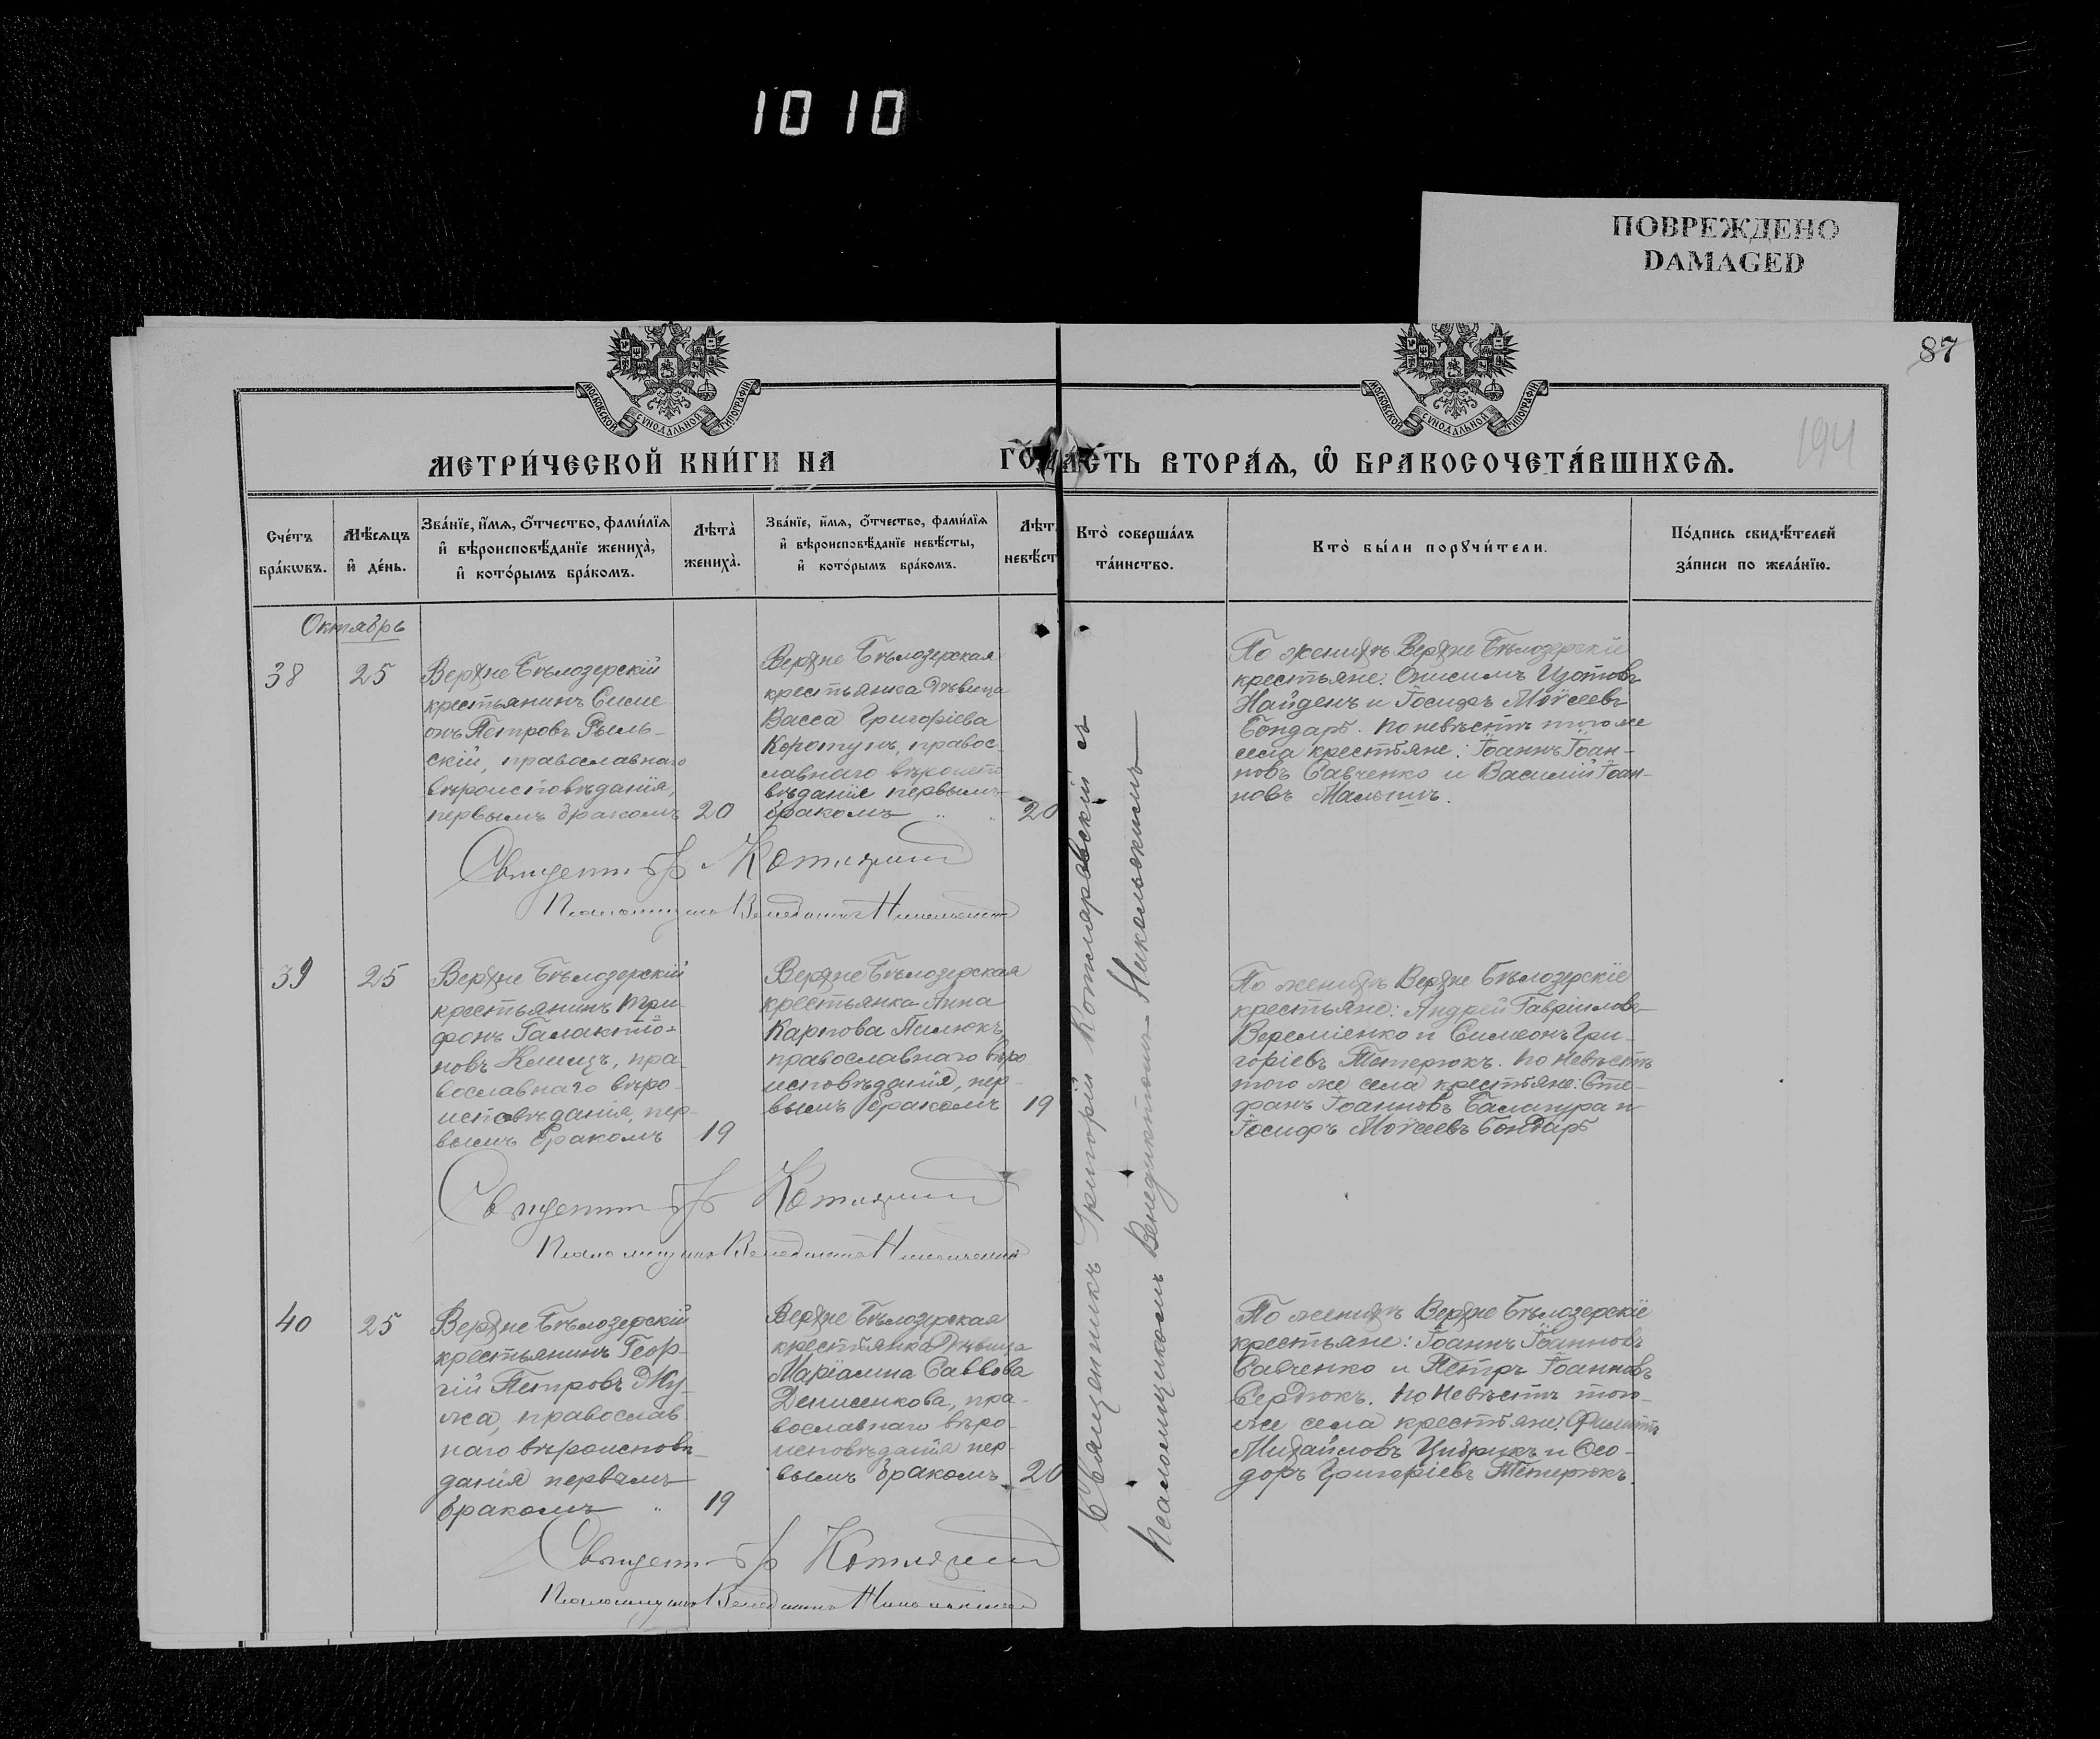 1010
ПОВРЕЖДЕНО
DAMAGED
87
194
МОСКОВСКОЙ СУНОДАЛЬНОЙ ТИПОГРАФІИ
МОСКОВСКОЙ СУНОДАЛЬНОЙ ТИПОГРАФІИ
МЕТРИ́ЧЕСКОЙ КНИ́ГИ НА ГО́Д
А́СТЬ ВТОРА́Ѧ, Ѽ БРАКОСОЧЕТА́ВШИХСѦ.
Сче́тъ
бра́кѡвъ.
Мѣ́сѧцъ
и҆ де́нь.
Зва́нїе, и҆́мѧ, ѻ҆́тчество, фами́лїѧ
и҆ вѣроисповѣ́данїе жениха̀,
и҆ кото́рымъ бра́комъ.
Лѣта̀
жениха̀.
Зва́нїе, и҆́мѧ, ѻ҆́тчество, фами́лїѧ
и҆ вѣроисповѣ́данїе невѣ́сты,
и҆ кото́рымъ бра́комъ.
Лѣт
невѣ́ст
Кто̀ соверша́лъ
та́инство.
Кто̀ бы́ли порꙋчи́тели.
По́дпись свидѣ́телей
за́писи по жела́нїю.
Октябрь
38
25
Верхне Бѣлозерскій
крестьянинъ Симе
онъ Петровъ Рыль-
скій, православнаго
вѣроисповѣданія,
первымъ бракомъ
20
Верхне Бѣлозерская
крестьянка дѣвица
Васса Григоріева
Коротунъ, правос-
лавнаго вѣроиспо
вѣданія первымъ
бракомъ
20
По женихѣ Верхне Бѣлозерскіе
крестьяне: Онисимъ Изотовъ
Найденъ и Іосифъ Моѵсеевъ
Бондарь. По невѣстѣ того же
села крестьяне: Іоаннъ Іоан-
новъ Савченко и Василій Іоан-
новъ Малышъ.
Псаломщикъ Венедиктъ Никольскій
39
25
Верхне Бѣлозерскій
крестьянинъ Три-
фонъ Галактіо-
новъ пра-
вославнаго вѣро-
исповѣданія, пер-
вымъ бракомъ
19
Верхне Бѣлозерская
крестьянка Анна
Карпова Пилюкъ,
православнаго вѣро
исповѣданія, пер-
вымъ бракомъ
19
По женихѣ Верхне Бѣлозерскіе
крестьяне: Андрей Гавріиловъ
Веремієнко и Симеонъ Гри-
горіевъ Тетерюкъ. По невѣстѣ
того же села крестьяне: Сте-
фанъ Іоанновъ Балацура и
Іосифъ Моѵсеевъ Бондарь
Псаломщикъ Венедиктъ Никольскій
40
25
Верхне Бѣлозерскій
крестьянинъ Геор-
гій Петровъ Му-
ха, православ-
наго вѣроисповѣ-
данія первымъ
бракомъ
19
Верхне Бѣлозерская
крестьянка дѣвица
Маріамна Саввова
Денисенкова, пра-
вославнаго вѣро-
исповѣданія пер-
вымъ бракомъ
20
По женихѣ Верхне Бѣлозерскіе
крестьяне: Іоаннъ Іоанновъ
Савченко и Петръ Іоанновъ
Сердюкъ. По невѣстѣ того-
же села крестьяне: Филиппъ
Михайловъ Цибрикъ и Ѳео-
доръ Григоріевъ Тетерюкъ.
Псаломщикъ Венедиктъ Никольскій
Священникъ Григорій Котляровскій съ
псаломщикомъ Венедиктомъ Никольскимъ